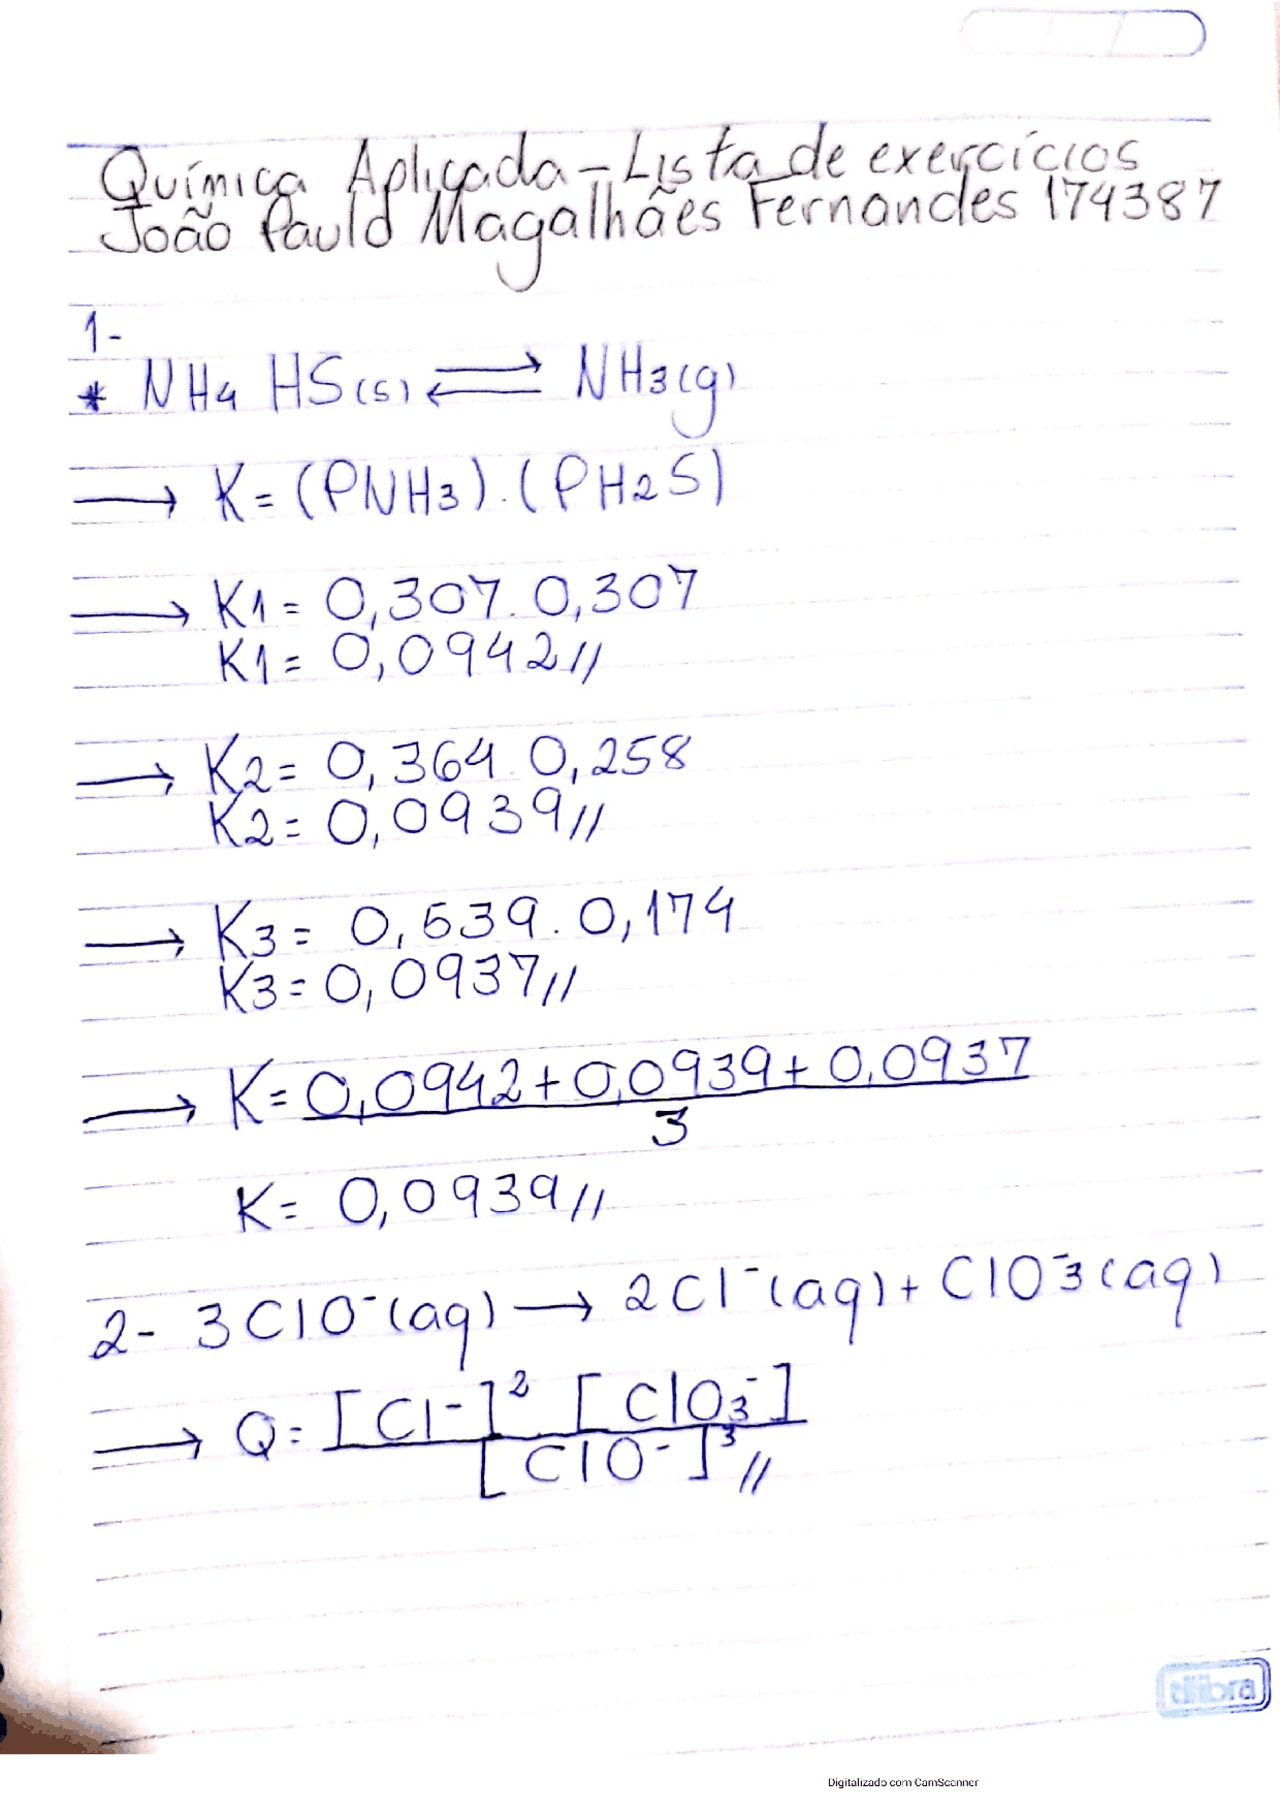 Química Aplicada - Lista de exercícios
João Paulo Magalhães Fernandes 174387
1-
* NH4 HS(s) ⇌ NH3(g)
→ K = (PNH3) . (PH2S)
→ K1 = 0,307 . 0,307
K1 = 0,0942//
→ K2 = 0,364 . 0,258
K2 = 0,0939//
→ K3 = 0,539 . 0,174
K3 = 0,0937//
→ K = 0,0942 + 0,0939 + 0,0937
3
K = 0,0939//
2- 3ClO⁻(aq) → 2Cl⁻(aq) + ClO⁻3(aq)
→ Q = [Cl⁻]² [ClO₃⁻]
[ClO⁻]³//
tilibra
Digitalizado com CamScanner